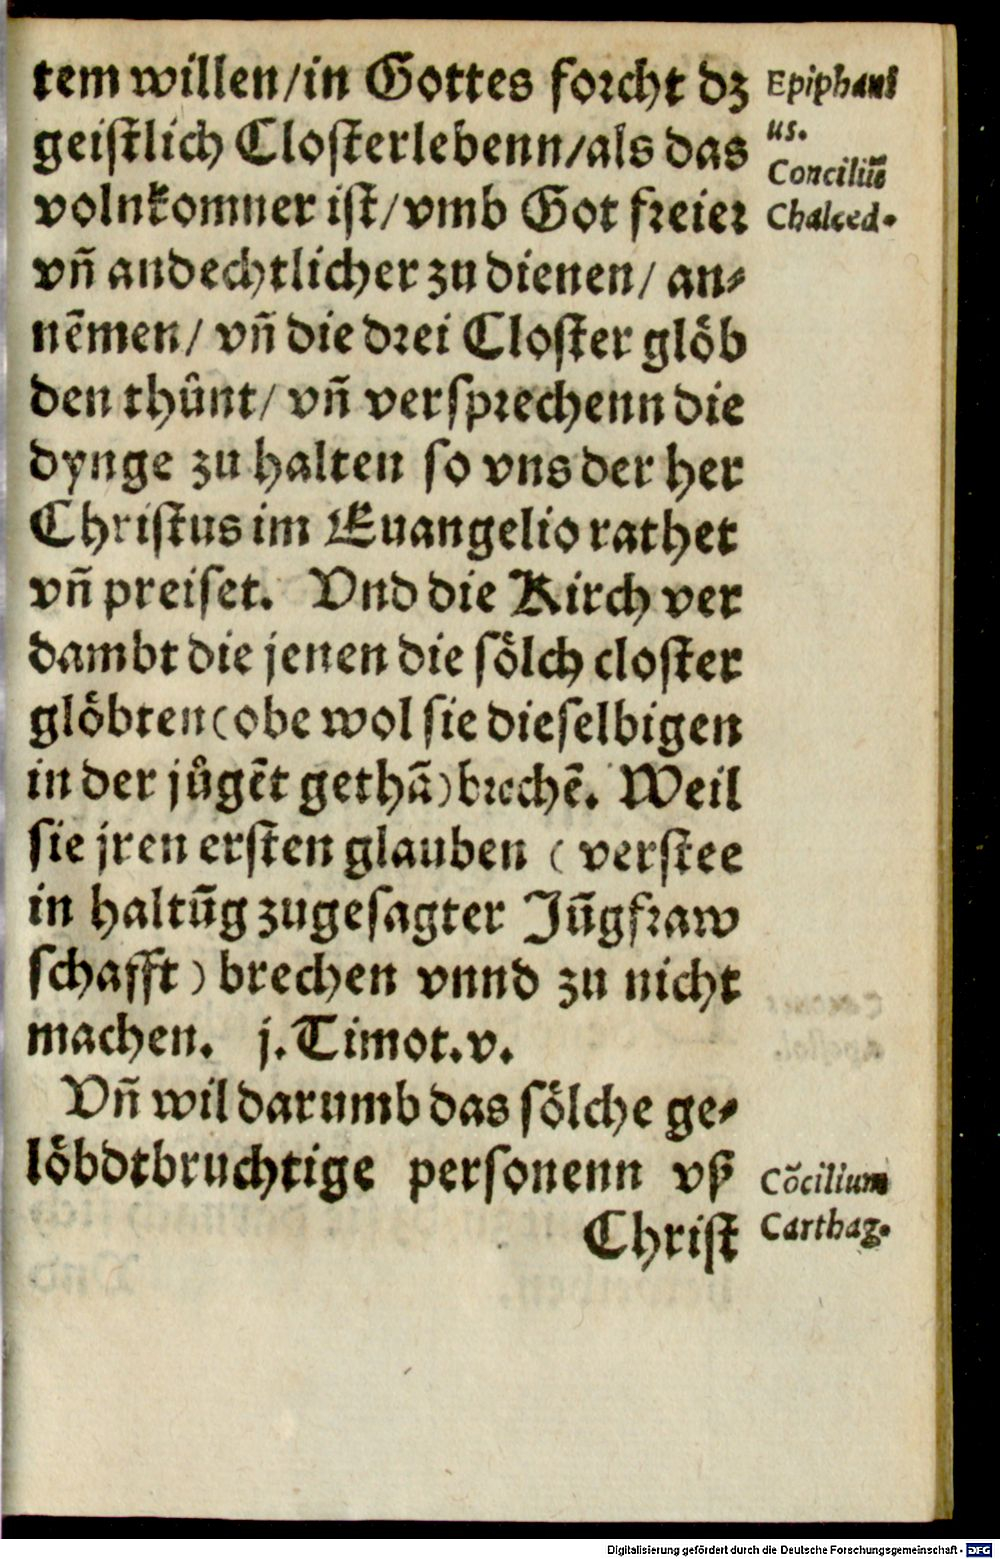 tem willen/in Gottes forcht dz
geistlich Closterlebenn/als das
volnkomner ist/vmb Got freier
vñ andechtlicher zu dienen/ an⸗
nẽmen/ vñ die drei Closter glöb
den thûnt/ vñ versprechenn die
dynge zu halten so vns der her
Christus im Euangelio rathet
vñ preiset. Vnd die Kirch ver
dambt die jenen die sölch closter
glöbten(obe wol sie dieselbigen
in der jûgẽt gethã)brechẽ. Weil
sie jren ersten glauben ( verstee
in haltũg zugesagter Jũgfraw
schafft) brechen vnnd zu nicht
machen. j.Timot.v.
Vñ wil darumb das sölche ge⸗
löbdtbruchtige personenn vß
Christ
Epiphani
us.
Conciliũ
Chalced.
Cõcilium
Carthag.
Digitalisierung gefördert durch die Deutsche Forschungsgemeinschaft - DFG